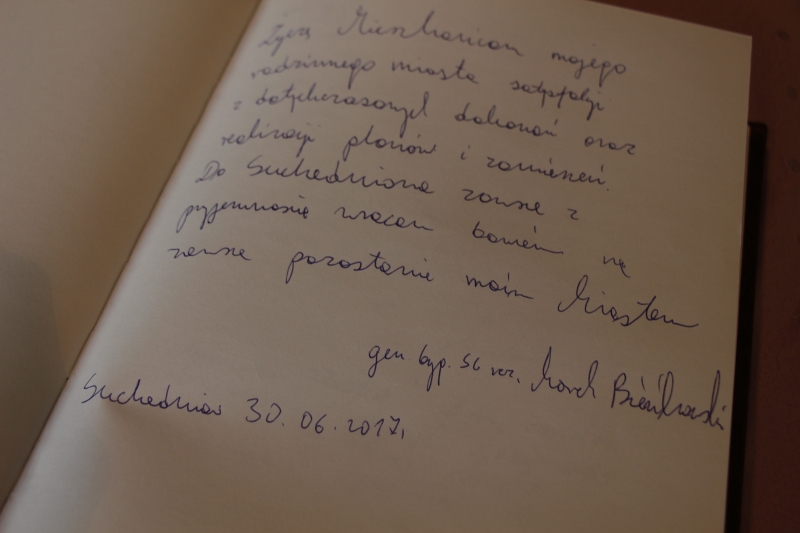 Życzę Mieszkańcom mojego
rodzinnego miasta satysfakcji
z dotychczasowych dokonań oraz
realizacji planów i zamierzeń.
Do Suchedniowa zawsze z
przyjemnością wracam bowiem
zawsze pozostanie moim Miastem
gen. bryg. SG Marek Bieńkowski
Suchedniów 30.06.2017.